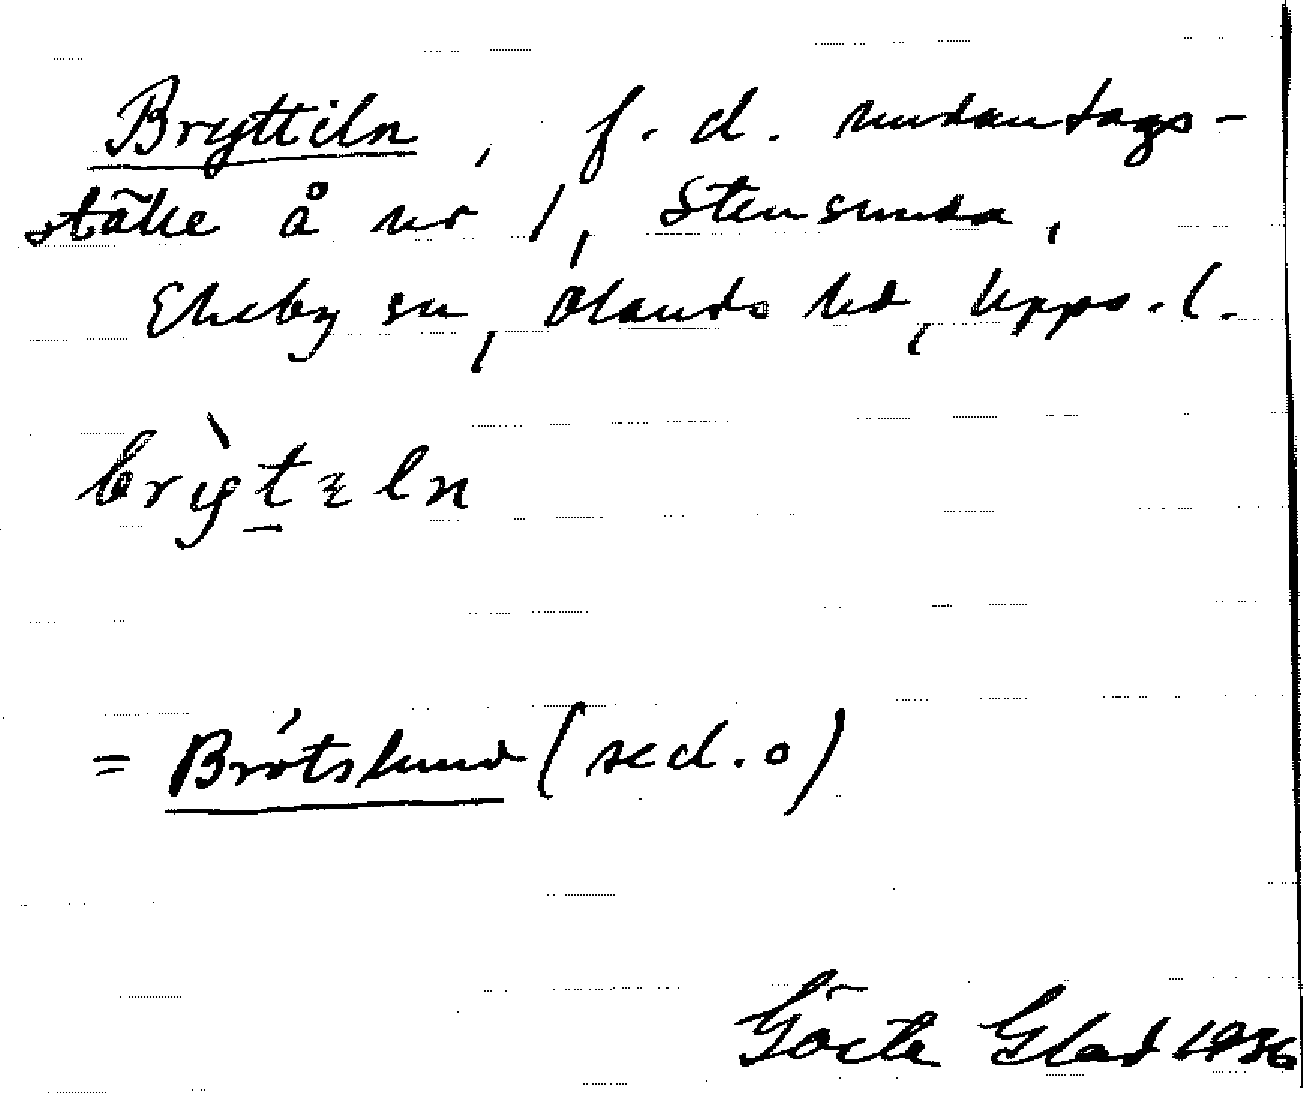 Bryttiln, f. d. undantags-
ställe å nr 1, Stensunda,
Ekeby sn, Olands hd, Upps. l.
brỳtɛln
= Brötslund (se d. o)
Gösta Glad 1936